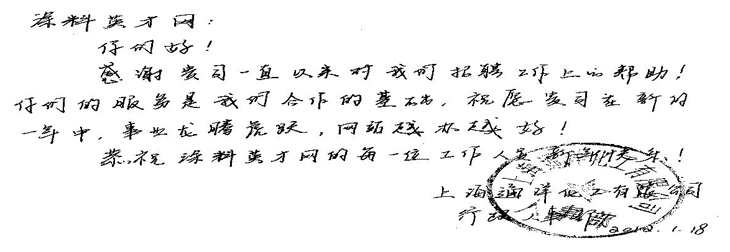 涂料英才网：
你们好！
感谢贵司一直以来对我们招聘工作上的帮助！
你们的服务是我们合作的基础，祝愿贵司在新的
一年中，事业龙腾虎跃，网站越办越好！
恭祝涂料英才网的每一位工作人员新年快乐！
上海海洋化工有限公司
行政人事部
2012.1.18